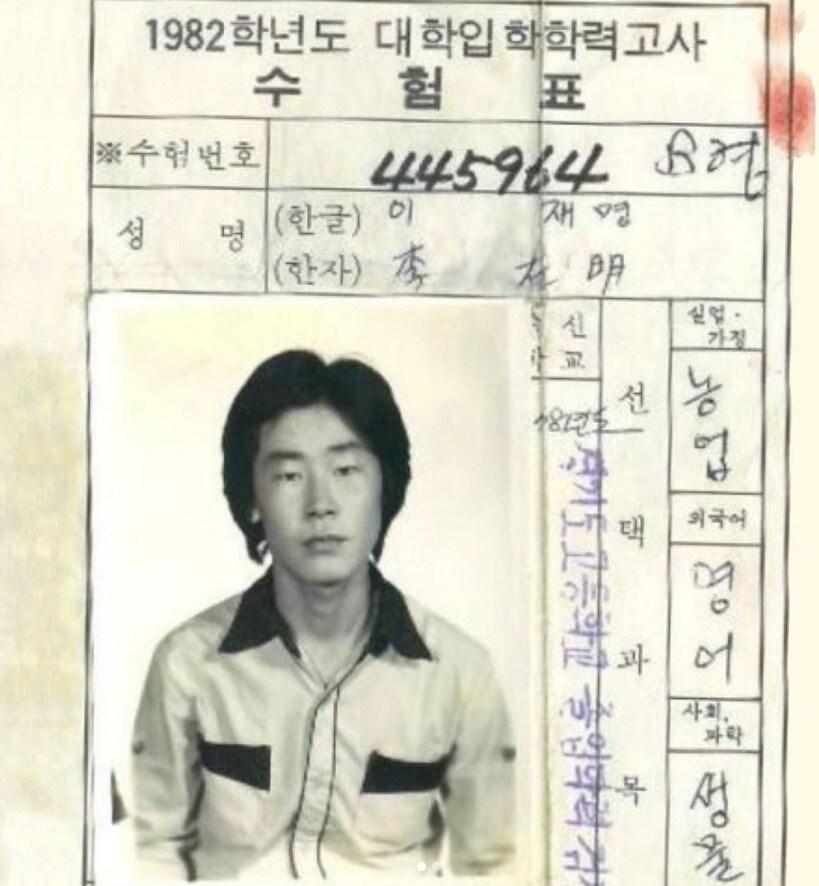 1982학년도 대학입학학력고사
수 험 표
※수험번호 445964 B형
성 명 (한글) 이 재 명
(한자) 李 在 明
신
교
선 택 과 목
실업·
가정
농업
외국어
영어
사회,
과학
생물